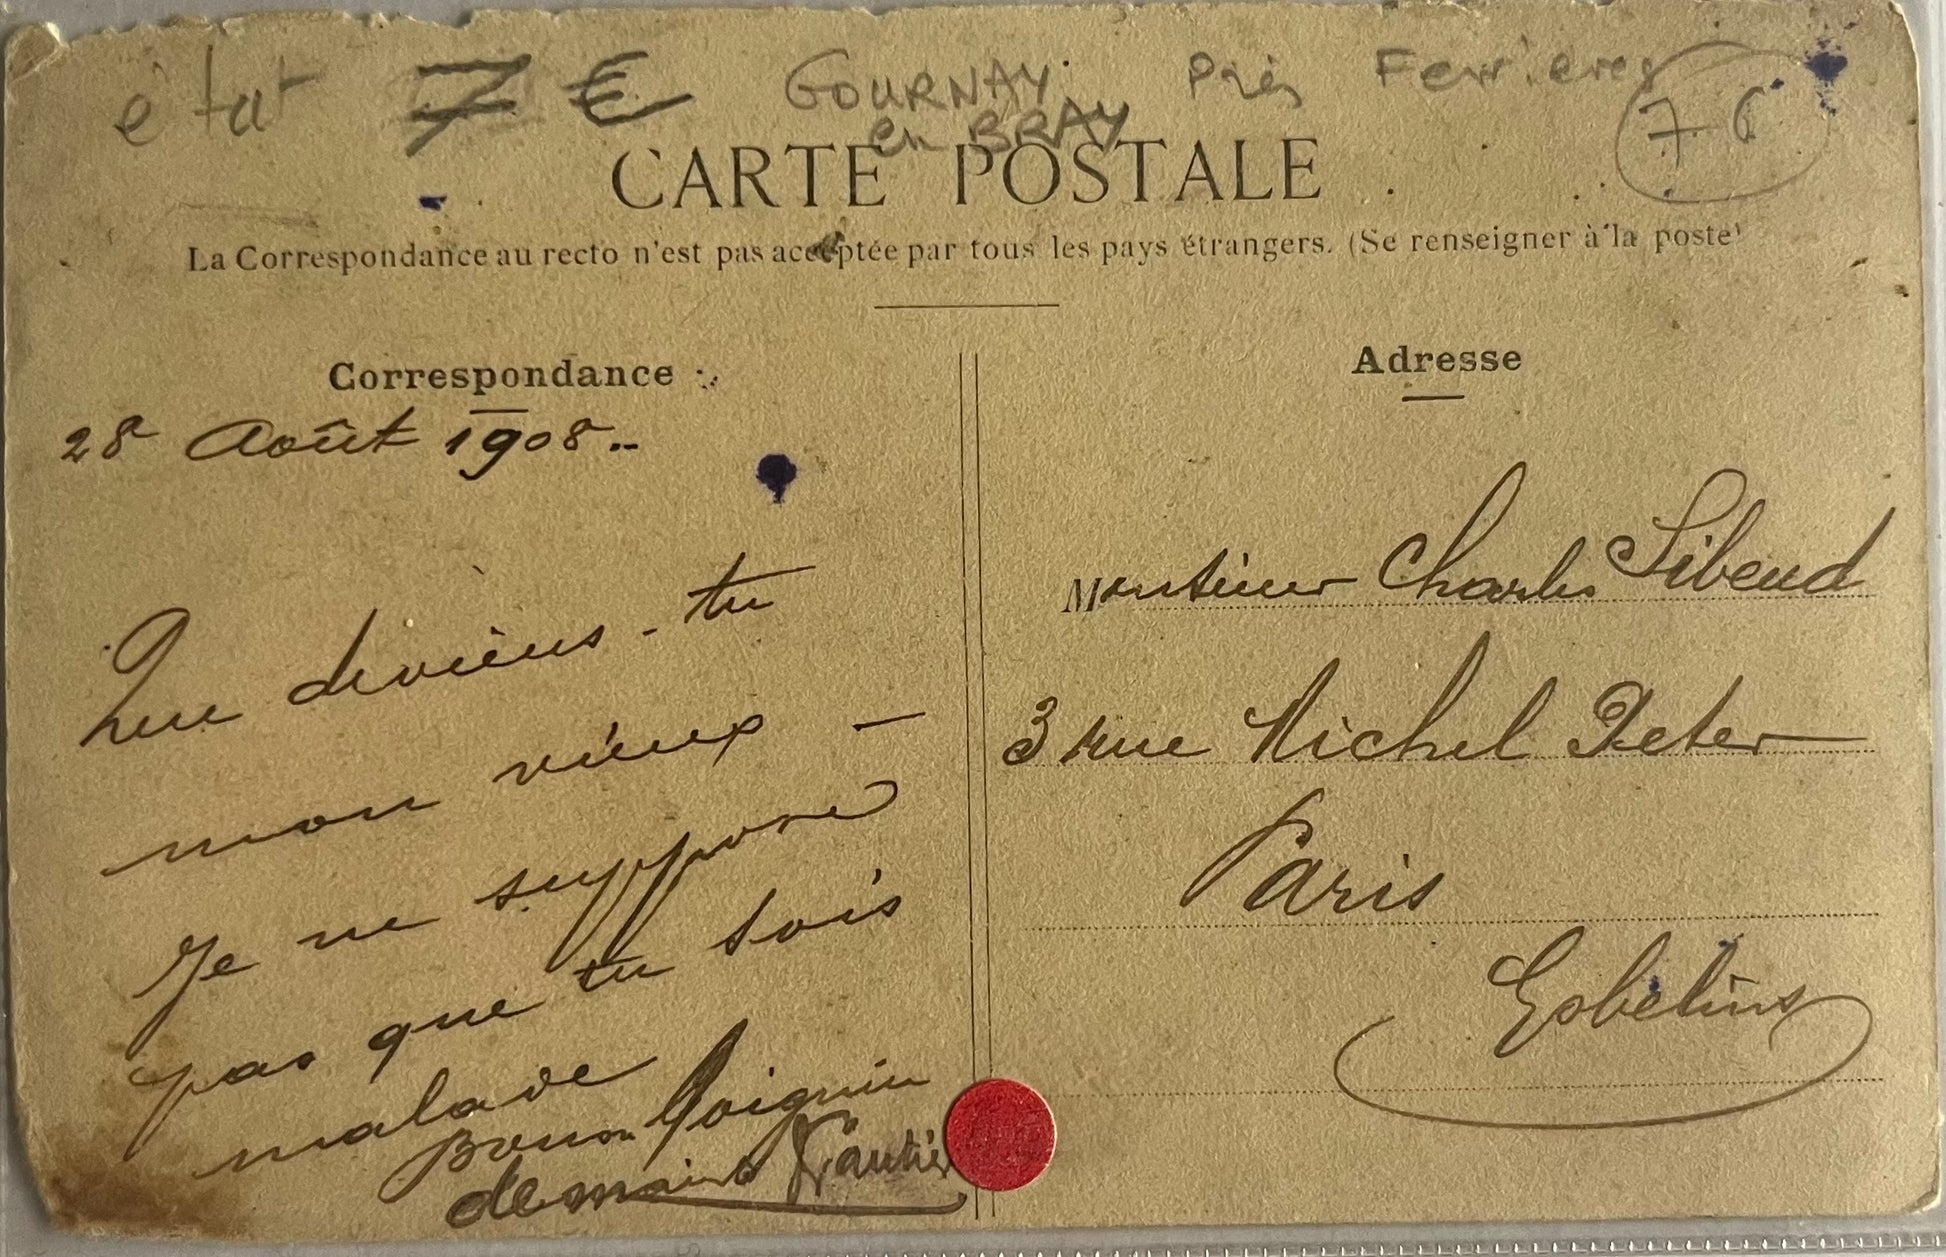 état 7 € GOURNAY près Ferrieres
en BRAY 76
CARTE POSTALE
La Correspondance au recto n'est pas acceptée par tous les pays étrangers. (Se renseigner à la poste)
Correspondance
28 Août 1908..
Que deviens-tu
mon vieux —
Je ne suppose
pas que tu sois
malade
demain Gautier
Adresse
Monsieur Charles Sibeud
3 rue Michel Peter
Paris
Gobelins